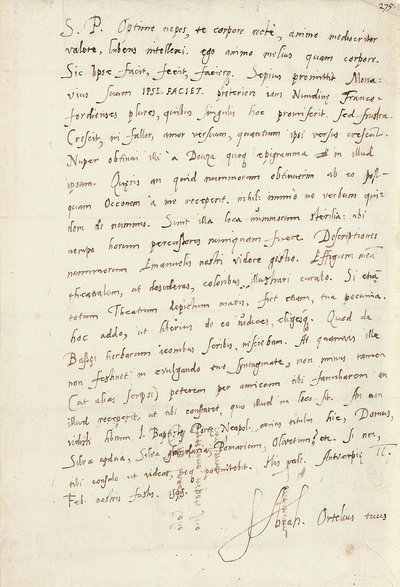 275.
S. P. Optime nepos, te corpore recte, animo mediocriter
valere, lubens intellexi. ego animo melius quam corpore.
Sic Ipse facit, fecit, faciet. Sepius promittit Mona-
vius suum IPSE FACIET. preteriere iam Nundinę Franco-
fordienses plures, quibus singulis hoc promiserit. Sed frustra.
Crescit, ni fallor, amor versuum, quantum ipsi versus crescunt.
Nuper obtinui illi à Douza quoq epigramma in illud
ipsum. Quęris an quid nummorum obtinuerim ab eo post-
quam Occonem à me receperit. nihil: immò ne verbum qui-
dem de nummis. Sunt illa loca nummorum sterilia: ubi
nempe horum percussores numquam fuere. Descriptiones
nummorum Emanuelis nostri videre gestio. Effigiem meā
theatalem, ut desideras, coloribus illustrari curabo. Si etiā
totum Theatrum depictum mavis, fiet etiam, tua pecunia.
hoc addo, ut liberius de eo iudices, eligesq. Quod de
Bassęi herbarum iconibus scribis, nesciebam. At quamvis ille
non festinet in evulgando tuo Syntagmate, non minus tamen
(ut alias scripsi) peterem per amicum tibi familiarem an
illud receperit. ut tibi constaret, quo illud in loco sit. An non
vidisti librum I. Baptistę Portę Neapol. cuius titulus hic, Domus,
Silva cędua, Silva glandaria, Pomarium, Olivetum, etc. Si non,
tibi consulo ut videas, neq poenitebit. His vale. Antverpię II.
Feb. nostri fastis. 1593.
Abrah. Ortelius tuus